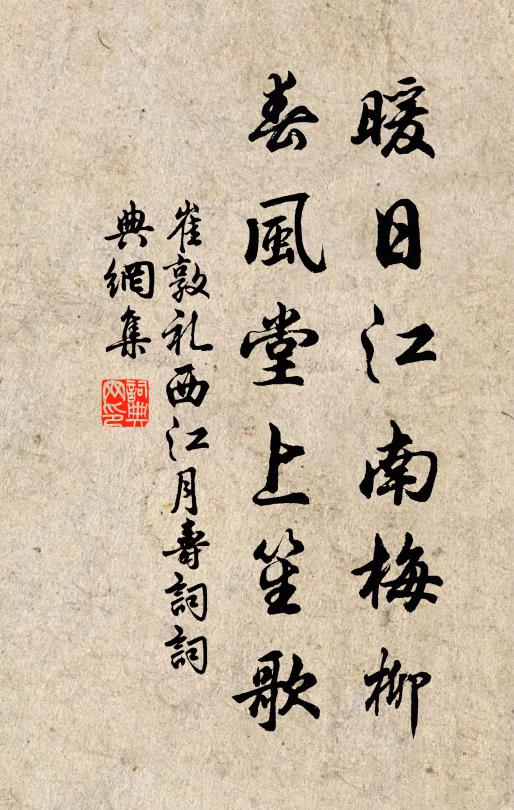 暖日江南梅柳
春風堂上笙歌
崔敦礼西江月壽詞詞
典網集
詞典網印